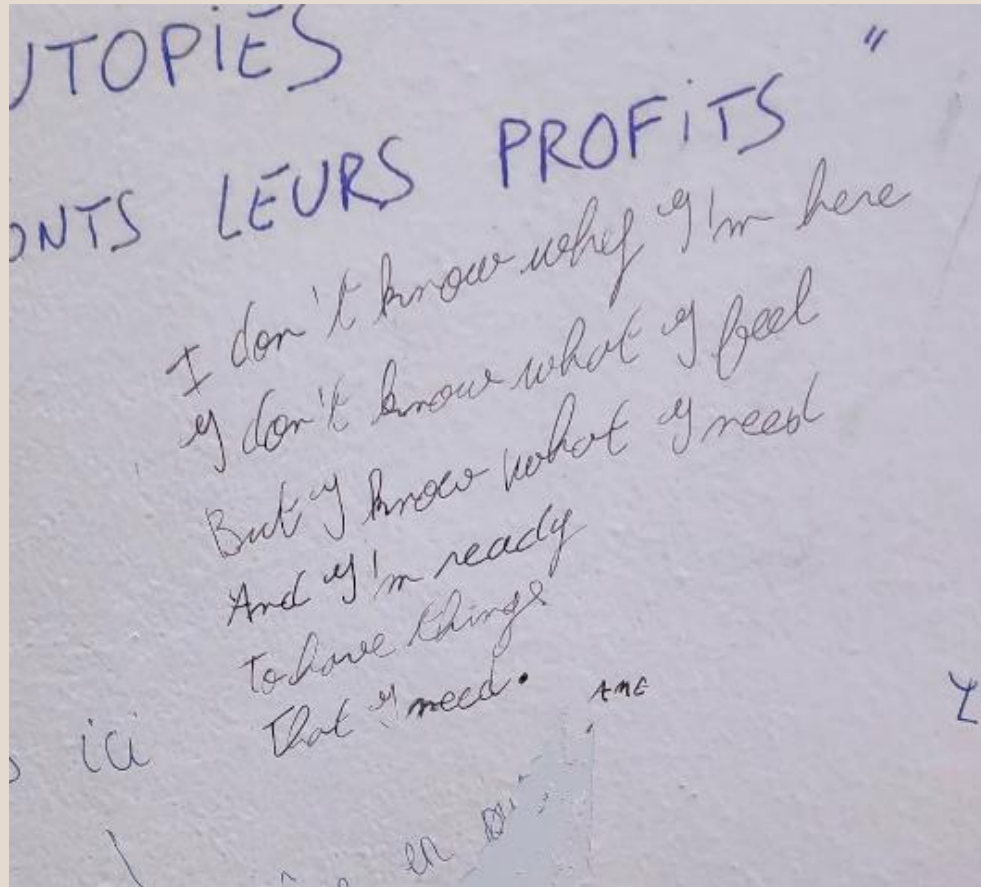 UTOPIES
"
ONTS LEURS PROFITS
I don't know why I'm here
I don't know what I feel
But I know what I need
And I'm ready
To have things
That I need.
AME
ici
en